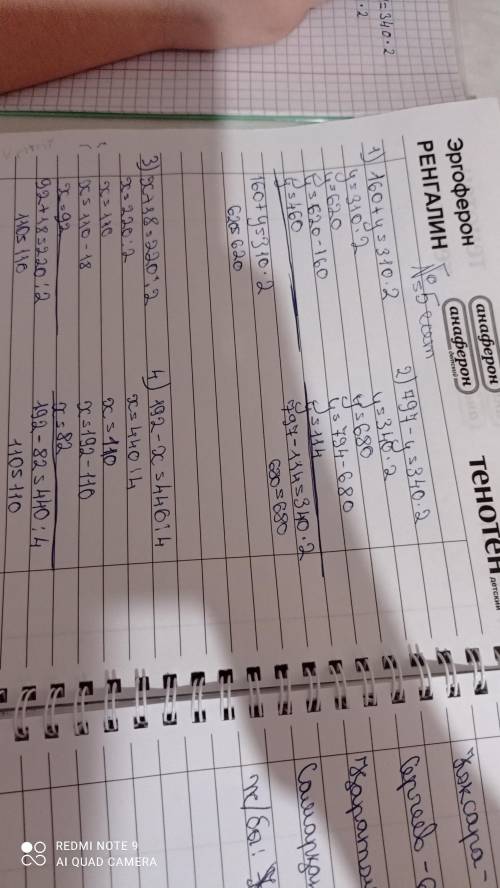 = 340·2
·2
Эргоферон
РЕНГАЛИН
анаферон
анаферон
детский
ТЕНОТЕН
детский
№5 есеп
1) 160+y=310·2
y=310·2
y=620
y=620-160
y=460
160+y=310·2
620=620
2) 797-y=340·2
y=340·2
y=680
y=794-680
y=114
797-114=340·2
680=680
3) x+18=220:2
x=220:2
x=110
x=110-18
x=92
92+18=220:2
110=110
4) 192-x=440:4
x=440:4
x=110
x=192-110
x=82
192-82=440:4
110=110
Сергеев-
REDMI NOTE 9
AI QUAD CAMERA